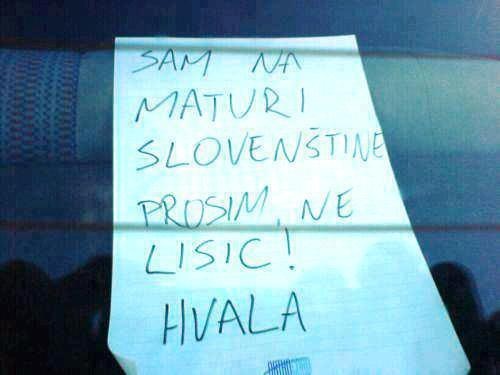 SAM NA
MATURI
SLOVENŠTINE
PROSIM, NE
LISIC!
HVALA